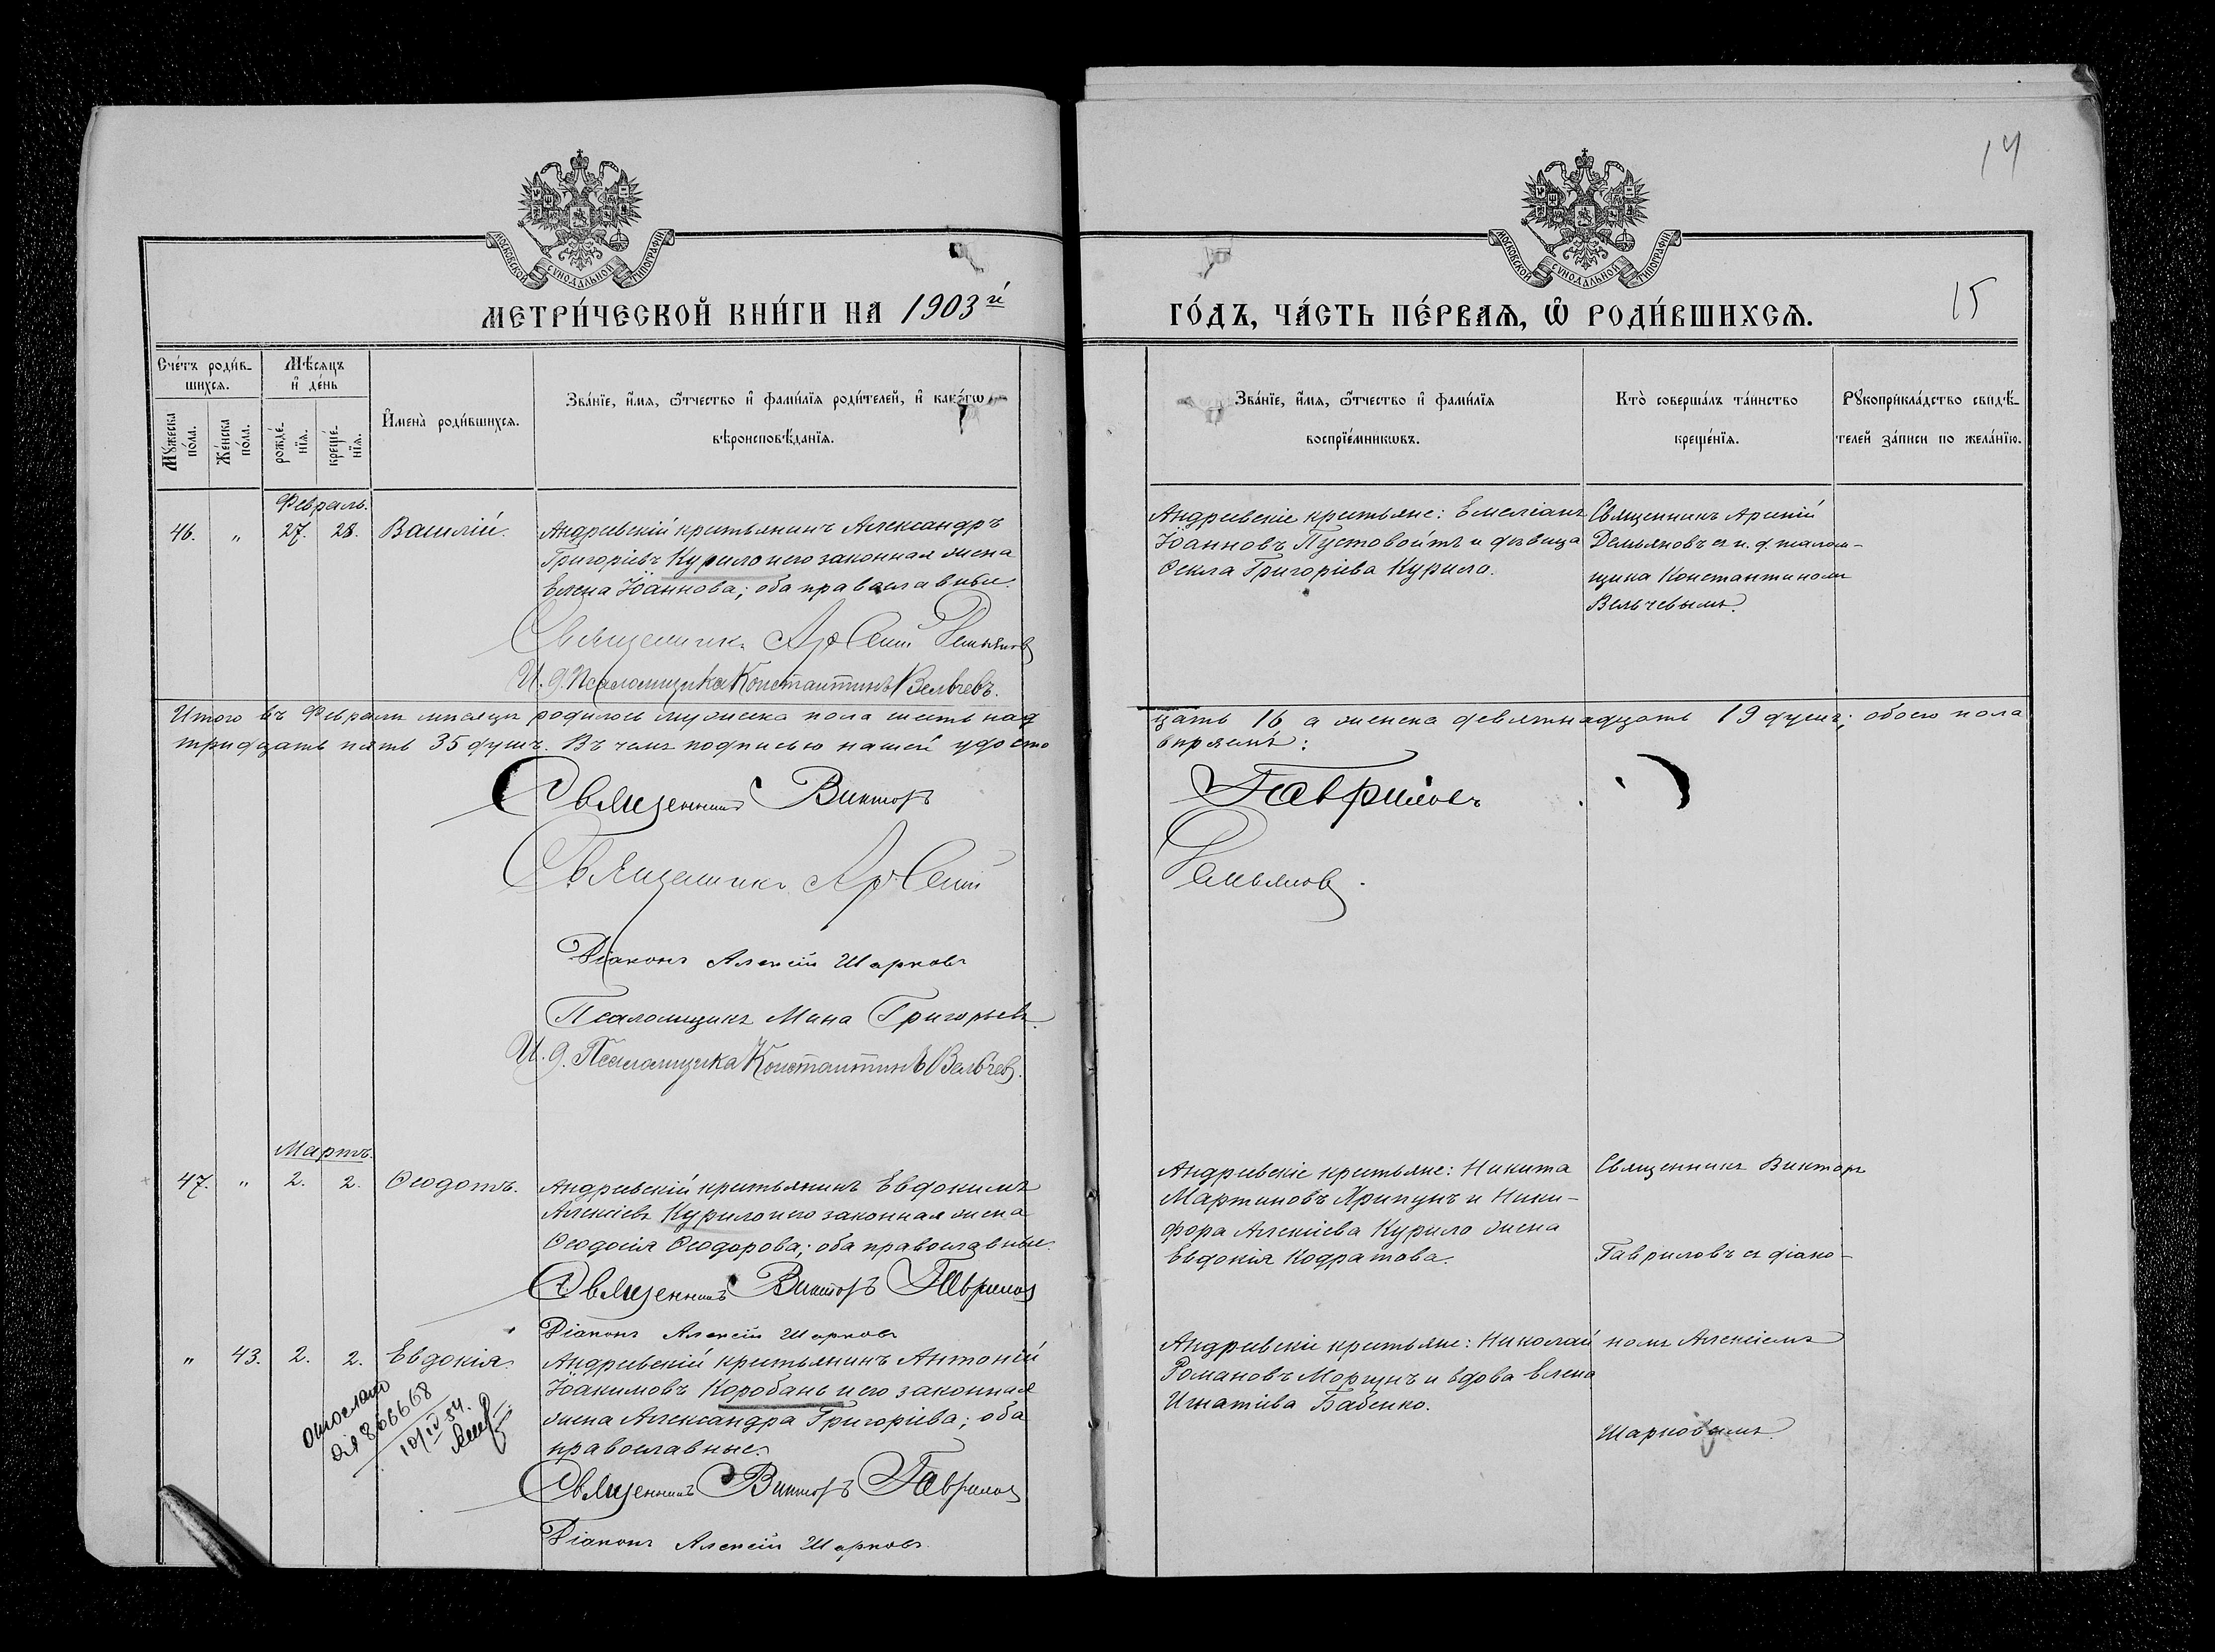 14
МОСКОВСКОЙ СѴНОДАЛЬНОЙ ТИПОГРАФІИ
МОСКОВСКОЙ СѴНОДАЛЬНОЙ ТИПОГРАФІИ
МЕТРИ́ЧЕСКОЙ КНИ́ГИ НА 1903й
ГО́ДЪ, ЧА́СТЬ ПЕ́РВАѦ, Ѡ РОДИ́ВШИХСѦ.
15
Сче́тъ роди́в-
шихсѧ.
Мѣ́сѧцъ
и҆ де́нь
Мꙋ́жеска
по́ла.
Же́нска
по́ла.
рожде́-
нїѧ.
креще́-
нїѧ.
И҆мена̀ роди́вшихсѧ.
Зва́нїе, и҆́мѧ, ѻ҆́тчество и҆ фами́лїѧ роди́телей, и҆ како́гѡ
вѣроисповѣ́данїѧ.
Зва́нїе, и҆́мѧ, ѻ҆́тчество и҆ фами́лїѧ
воспрїе́мникѡвъ.
Кто̀ соверша́лъ та́инство
креще́нїѧ.
Рꙋкоприкла́дство свидѣ́-
телей за́писи по жела́нїю.
Февраль.
46. " 27. 28. Василій. Андреевскій крестьянинъ Александръ
Григоріевъ Курило и его законная жена
Елена Іоаннова; оба православные.
Священникъ Арсений Демьянов
И. д. Псаломщика Константинъ Вельчевъ.
Андреевскіе крестьяне: Емеліанъ
Іоанновъ Пустовойтъ и дѣвица
Ѳекла Григоріева Курило.
Священникъ Арсеній
Демьяновъ съ и. д. псалом-
щика Константиномъ
Вельчевымъ.
Итого въ Февралѣ мѣсяцѣ родилось мужеска пола шестьнад
цать 16 а женска девятнадцать 19 душъ; обоего пола
тридцать пять 35 душъ. Въ чемъ подписью нашей удосто
вѣряемъ:
Священникъ Викторъ
Гавриловъ
Священникъ Арсений
Демьянов.
Діаконъ Алексій Шарковъ
Псаломщикъ Мина Григорьевъ.
И. д. Псаломщика Константинъ Вельчев.
Мартъ.
47. " 2. 2. Ѳеодотъ. Андреевскій крестьянинъ Евдокимъ
Алексіевъ Курило и его законная жена
Ѳеодосія Ѳеодорова; оба православные.
Священникъ Викторъ Гаврилов
Діаконъ Алексій Шарковъ
Андреевскіе крестьяне: Никита
Мартиновъ Припунъ и Ники-
фора Алексіева Курило жена
Евдокія Кодратова.
Священникъ Викторъ
Гавриловъ съ діако-
" 43. 2. 2. Евдокія. Андреевскій крестьянинъ Антоній
Іоакимовъ Коробань и его законная
жена Александра Григоріева; оба
православные.
Священникъ Викторъ Гаврилов
Діаконъ Алексій Шарковъ.
отослано
866668
10/IV 54.
Андреевскіе крестьяне: Николай
Романовъ Моргунъ и вдова Елена
Игнатіева Бабенко.
номъ Алексіемъ
Шарковымъ.